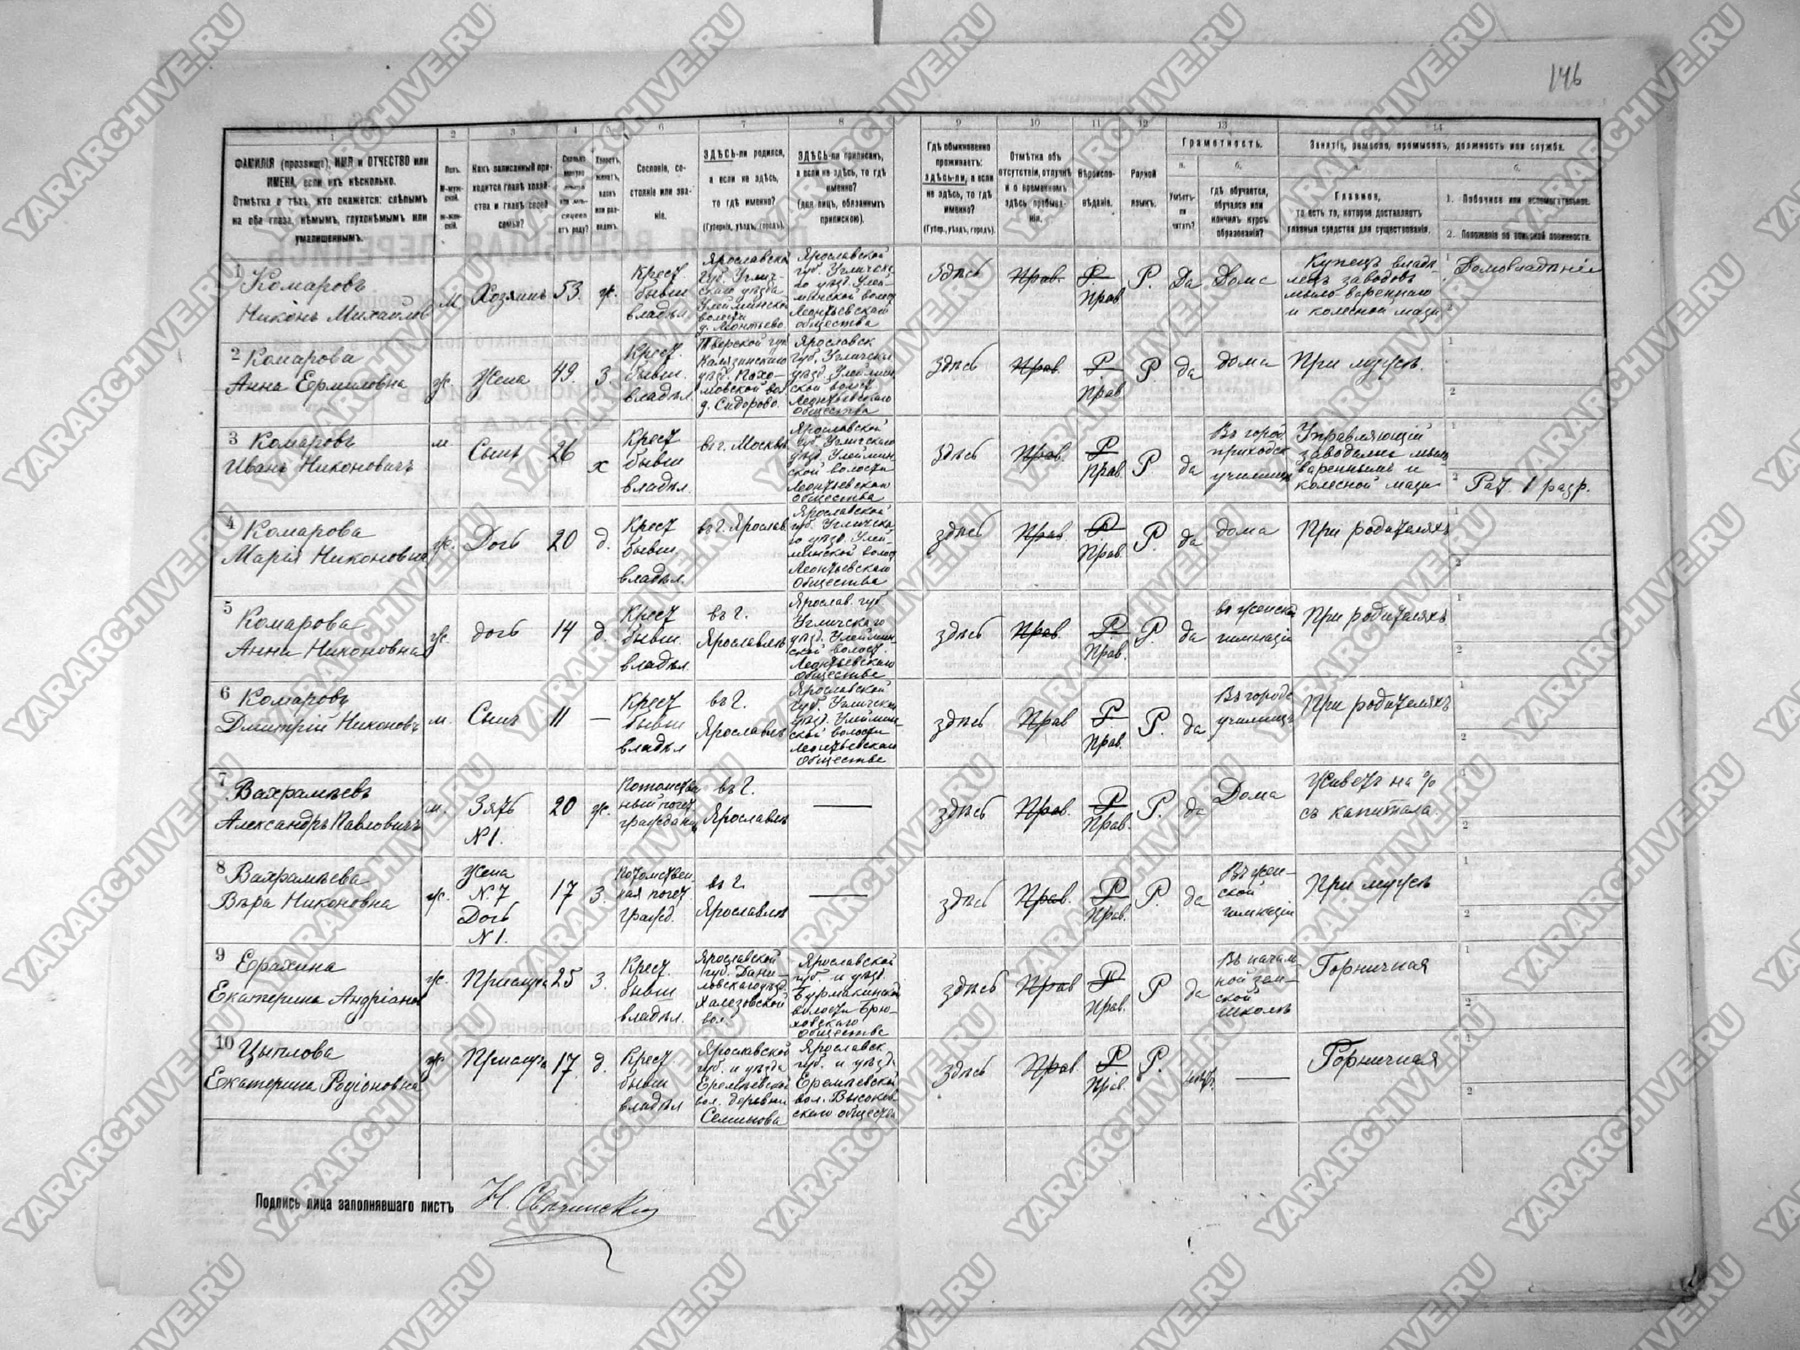 146
1 2 3 4 5 6 7 8 9 10 11 12 13 14
ФАМИЛІЯ (прозвище), ИМЯ и ОТЧЕСТВО или
ИМЕНА, если ихъ нѣсколько.
Отмѣтка о тѣхъ, кто окажется: слѣпымъ
на оба глаза, нѣмымъ, глухонѣмымъ или
умалишеннымъ.
Полъ.
М-мужской.
Ж-женскій.
Какъ записанный при-
ходится главѣ хозяй-
ства и главѣ своей
семьи?
Сколько
минуло
лѣтъ
или мѣ-
сяцевъ
отъ роду?
Холостъ,
женатъ,
вдовъ
или раз-
веденъ.
Сословіе, со-
стояніе или зва-
ніе.
ЗДѢСЬ-ли родился,
а если не здѣсь,
то гдѣ именно?
(Губернія, уѣздъ, городъ).
ЗДѢСЬ-ли приписанъ,
а если не здѣсь, то гдѣ
именно?
(для лицъ, обязанныхъ
припискою).
Гдѣ обыкновенно
проживаетъ:
здѣсь-ли, а если
не здѣсь, то гдѣ
именно?
(Губер., уѣздъ, городъ).
Отмѣтка объ
отсутствіи, отлучкѣ
и о временномъ
здѣсь пребыва-
ніи.
Вѣроиспо-
вѣданіе.
Родной
языкъ.
Грамотность.
а.
Умѣетъ-
ли
читать?
б.
гдѣ обучается,
обучался или
кончилъ курсъ
образованія?
Занятіе, ремесло, промыселъ, должность или служба.
а.
Главное,
то есть то, которое доставляетъ
главныя средства для существованія.
б.
1. Побочное или вспомогательное.
2. Положеніе по воинской повинности.
1 Комаровъ
Никонъ Михайлов
М
Хозяинъ
53
ж.
Крест
бывш
владѣл.
Ярославской
губ. Углич-
скаго уѣзда
Улейминской
волости
д. Леонтьево
Ярославской
губ. Угличска-
го уѣзд. Улей-
минской волост
Леонтьевскаго
общества
здѣсь
Прав.
Р.
Прав
Р.
Да
Дома
Купецъ владѣ-
лецъ заводовъ
мыло вареннаго
и колесной мази
1 Домовладѣніе
2
2 Комарова
Анна Ермиловна
ж.
Жена
49
З
Крест.
бывш.
владѣл.
Тверской губ
Калязинскаго
уѣзд.
д. Сидорово.
Ярославск
губ. Угличск
уѣзд. Улеймин
ской волост
Леонтьевскаго
общества
здѣсь
Прав.
Р.
Прав
Р
да
дома
При мужѣ.
1
2
3 Комаровъ
Иванъ Никоновичъ
м
Сынъ
26
х
Крест
бывш
владѣл.
въ г. Москвѣ
Ярославской
губ. Угличскаго
уѣзд. Улеймин
ской волости
Леонтьевскаго
общества
здѣсь
Прав.
Р
Прав.
Р
да
Въ город.
приходск
училищѣ
Управляющій
заводами мыло
вареннымъ и
колесной мази
1
2 Рат. 1 разр.
4 Комарова
Марія Никоновна
ж.
Дочь
20
д.
Крест
бывш.
владѣл.
въ г. Ярослав
Ярославской
губ. Угличска
го уѣзд. Улей-
минской волост
Леонтьевскаго
общества
здѣсь
Прав
Р
Прав.
Р.
да
дома
При родителяхъ
1
2
5 Комарова
Анна Никоновна
ж.
дочь
14
д.
Крест
бывш.
владѣл.
въ г.
Ярославлѣ
Ярослав. губ
Угличскаго
уѣзд. Улеймин-
ской волост.
Леонтьевскаго
общества
здѣсь
Прав
Р
Прав.
Р.
да
въ женской
гимназіи
При родителяхъ
1
2
6 Комаровъ
Дмитрій Никоновъ
м.
Сынъ
11
—
Крест
бывш
владѣл
въ г.
Ярославлѣ
Ярославской
губ. Угличска
уѣзд. Улеймин-
ской волости
Леонтьевскаго
общества
здѣсь
Прав
Р
Прав.
Р.
да
Въ городс
училищѣ
При родителяхъ
1
2
7 Вахрамѣевъ
Александръ Павловичъ
м.
Зять
№ 1.
20
ж.
Потомств
ный почет
гражданинъ
въ г.
Ярославлѣ
—
здѣсь
Прав.
Р
Прав.
Р.
да
Дома
Живетъ на %
съ капитала.
1
2
8 Вахрамѣева
Вѣра Никоновна
ж.
Жена
№ 7
Дочь
№ 1.
17
З.
Потомствен
ная почет
гражд.
въ г.
Ярославлѣ
—
здѣсь
Прав.
Р
Прав.
Р.
да
Въ жен-
ской
гимназіи
При мужѣ
1
2
9 Ерахина
Екатерина Андріанов
ж.
Прислуга
25
З.
Крест.
бывш
владѣл.
Ярославской
губ. Дани-
ловскаго уѣзд
Халезовской
вол.
Ярославской
губ. и уѣзд.
Бурмакинской
волости Брю-
ховскаго
общества
здѣсь
Прав
Р
Прав.
Р
да
Въ началь
ной зем-
ской
школѣ
Горничная
1
2
10 Цыплова
Екатерина Родіоновна
ж.
Прислуга
17.
д.
Крест
бывш
владѣл
Ярославской
губ. и уѣзда
Еремѣевской
вол. деревни
Семинова
Ярославск
губ. и уѣзда
Еремѣевской
вол. Высоков
скаго общества
здѣсь
Прав
Р
Прав.
Р.
нѣтъ
—
Горничная
1
2
Подпись лица заполнявшаго листъ